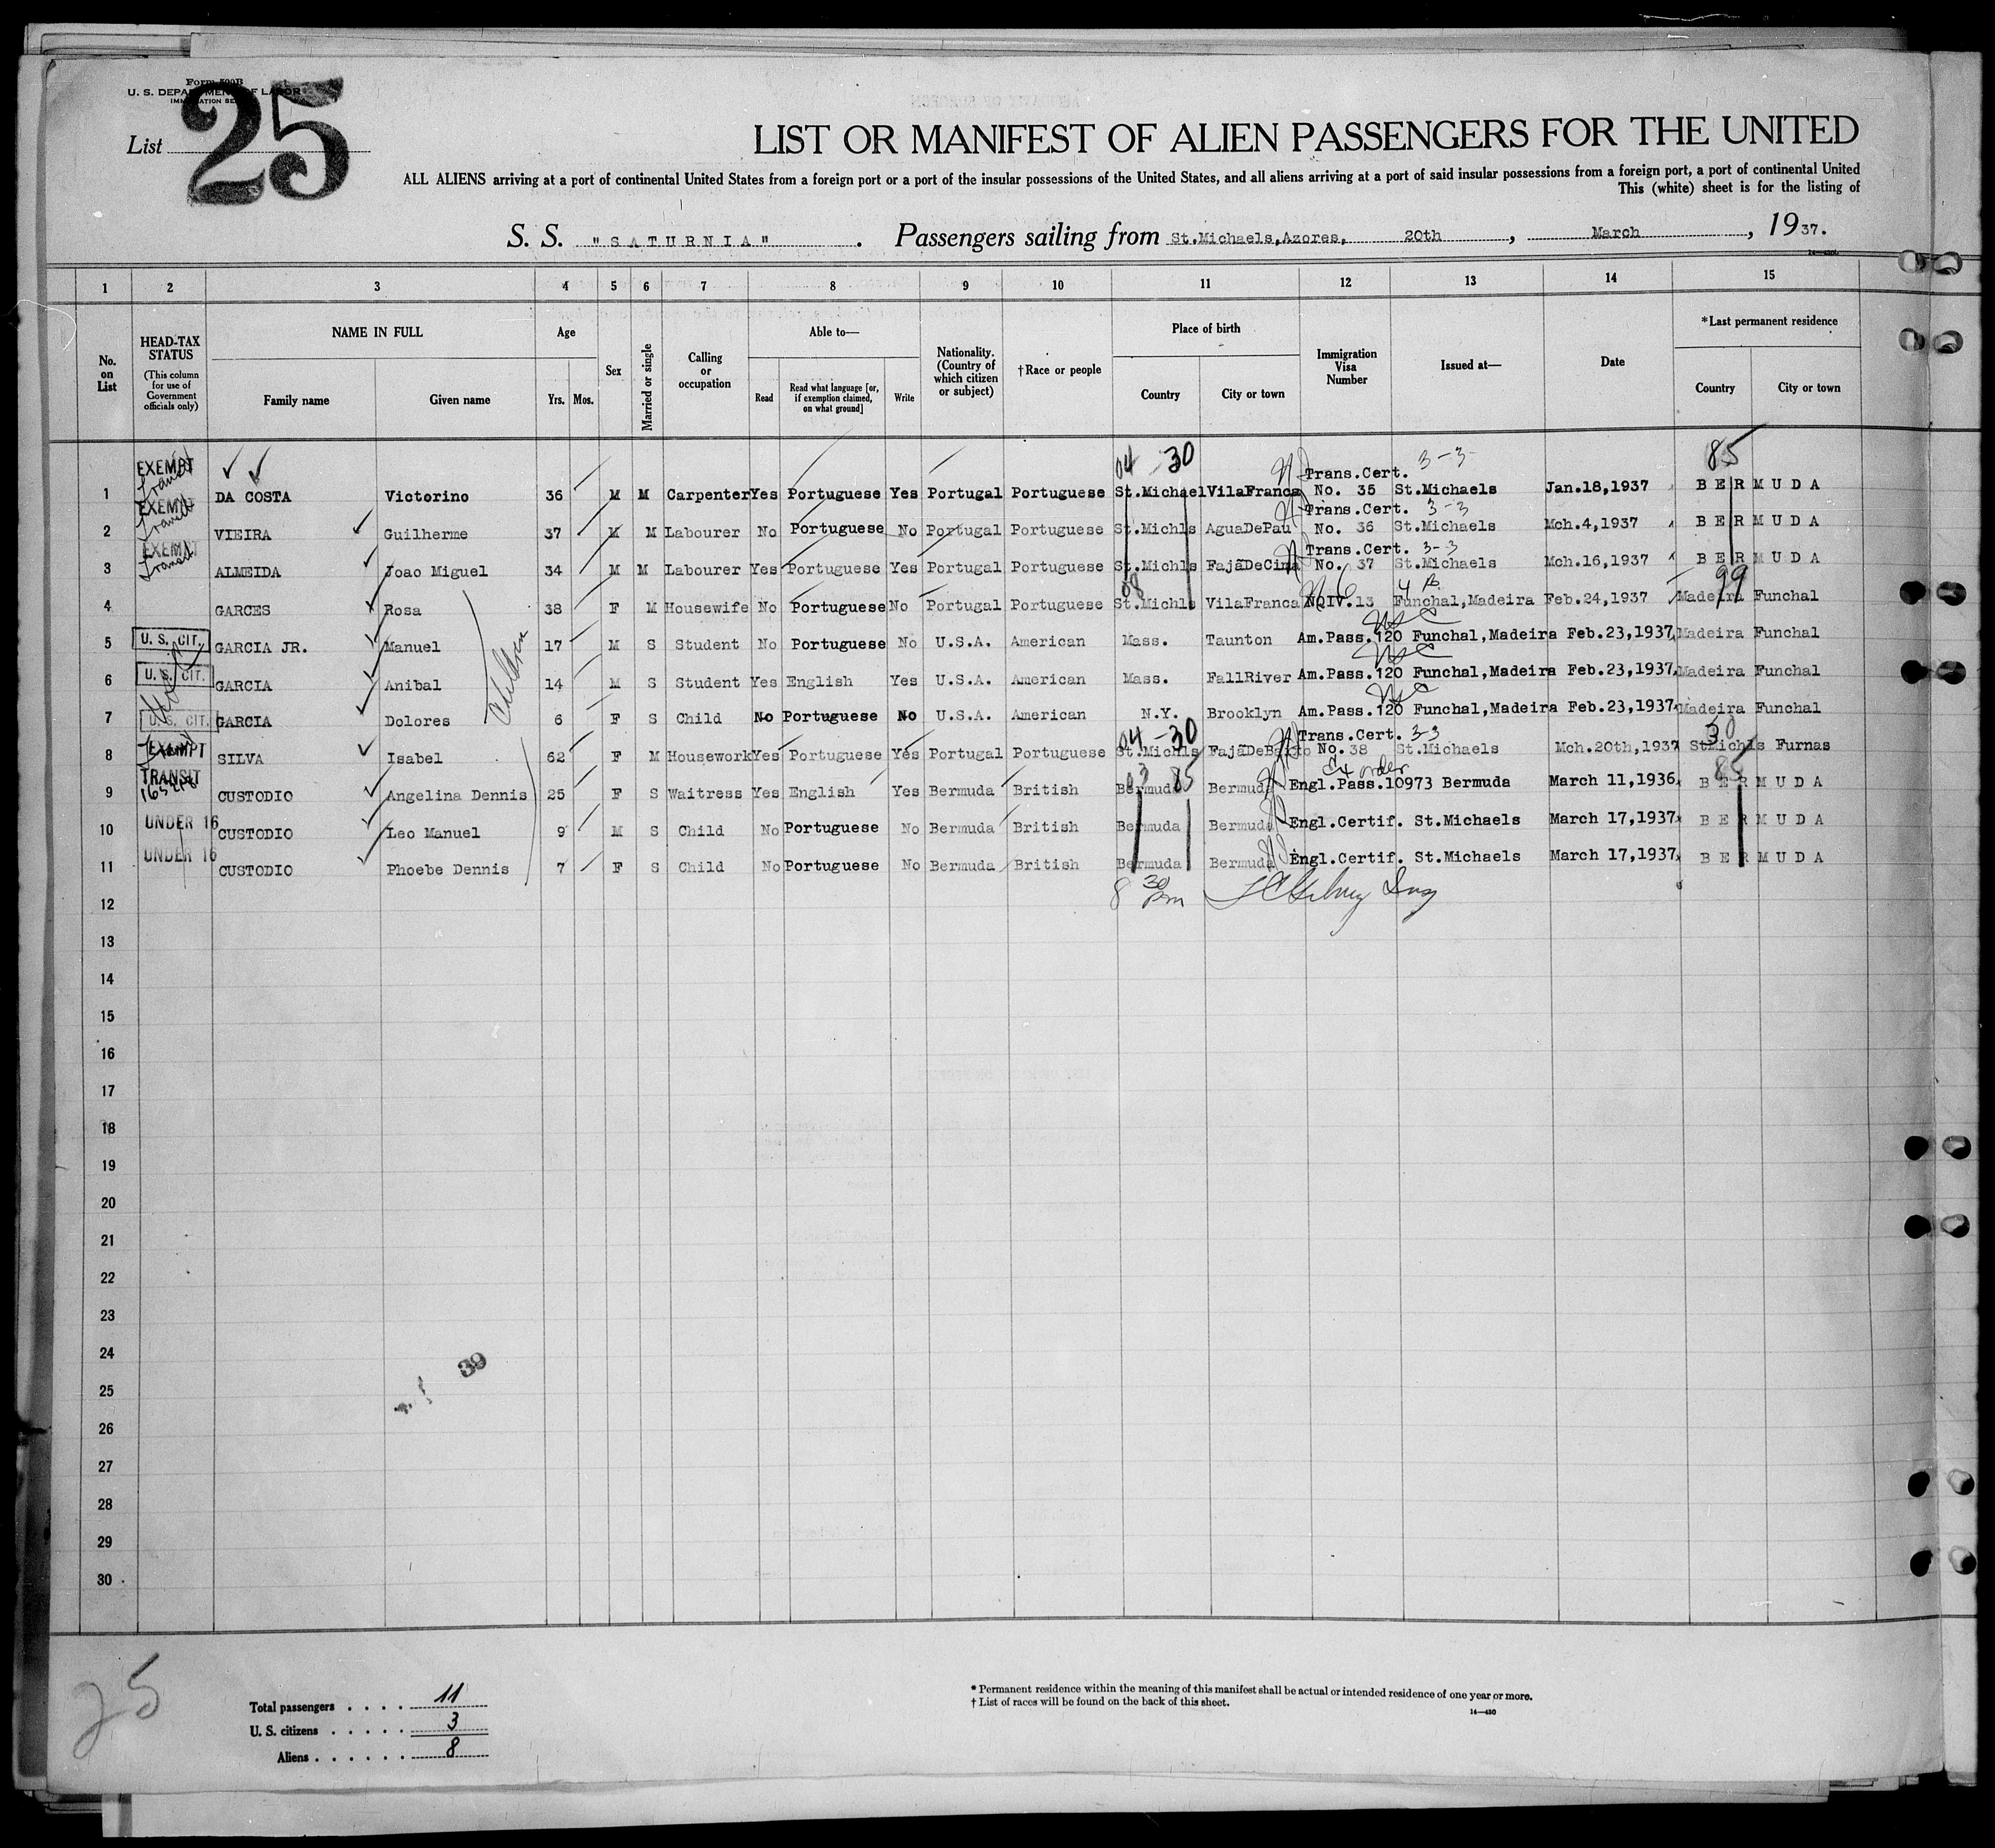 Form 500B
U. S. DEPARTMENT OF LABOR
IMMIGRATION SE
List 25
LIST OR MANIFEST OF ALIEN PASSENGERS FOR THE UNITED
ALL ALIENS arriving at a port of continental United States from a foreign port or a port of the insular possessions of the United States, and all aliens arriving at a port of said insular possessions from a foreign port, a port of continental United
This (white) sheet is for the listing of
S. S. "SATURNIA" . Passengers sailing from St.Michaels,Azores, 20th , March , 1937.
1 2 3 4 5 6 7 8 9 10 11 12 13 14 15
No. on List
HEAD-TAX STATUS (This column for use of Government officials only)
NAME IN FULL Family name Given name
Age Yrs. Mos.
Sex
Married or single
Calling or occupation
Able to— Read Read what language [or, if exemption claimed, on what ground] Write
Nationality. (Country of which citizen or subject)
†Race or people
Place of birth Country City or town
Immigration Visa Number
Issued at—
Date
*Last permanent residence Country City or town
04 - 30 85
1 EXEMPT Transit DA COSTA Victorino 36 M M Carpenter Yes Portuguese Yes Portugal Portuguese St.Michael VilaFranca Trans.Cert. No. 35 3-3 St.Michaels Jan.18,1937 BERMUDA
2 EXEMPT Transit VIEIRA Guilherme 37 M M Labourer No Portuguese No Portugal Portuguese St.Michls AguaDePau Trans.Cert. No. 36 3-3 St.Michaels Mch.4,1937 BERMUDA
3 EXEMPT Transit ALMEIDA Joao Miguel 34 M M Labourer Yes Portuguese Yes Portugal Portuguese St.Michls FajãDeCima Trans.Cert. No. 37 3-3 St.Michaels Mch.16,1937 BERMUDA
4 GARCES Rosa 38 F M Housewife No Portuguese No Portugal Portuguese 08 St.Michls VilaFranca NQIV.13 Funchal,Madeira Feb.24,1937 99 Madeira Funchal
5 U. S. CIT. GARCIA JR. Manuel 17 M S Student No Portuguese No U.S.A. American Mass. Taunton Am.Pass.120 Funchal,Madeira Feb.23,1937 Madeira Funchal
6 U. S. CIT. GARCIA Anibal Children 14 M S Student Yes English Yes U.S.A. American Mass. FallRiver Am.Pass.120 Funchal,Madeira Feb.23,1937 Madeira Funchal
7 U. S. CIT. GARCIA Dolores 6 F S Child No Portuguese No U.S.A. American N.Y. Brooklyn Am.Pass.120 Funchal,Madeira Feb.23,1937 Madeira Funchal
04 - 30 30
8 EXEMPT SILVA Isabel 62 F M Housework Yes Portuguese Yes Portugal Portuguese St.Michls FajãDeBaixo Trans.Cert. No.38 3-3 St.Michaels Mch.20th,1937 St.Michls Furnas
03 85 85
9 TRANSIT CUSTODIO Angelina Dennis 25 F S Waitress Yes English Yes Bermuda British Bermuda Bermuda Engl.Pass.10973 Bermuda March 11,1936 BERMUDA
10 UNDER 16 CUSTODIO Leo Manuel 9 M S Child No Portuguese No Bermuda British Bermuda Bermuda Engl.Certif. St.Michaels March 17,1937 BERMUDA
11 UNDER 16 CUSTODIO Phoebe Dennis 7 F S Child No Portuguese No Bermuda British Bermuda Bermuda Engl.Certif. St.Michaels March 17,1937 BERMUDA
12 8 30 Pm
13
14
15
16
17
18
19
20
21
22
23
24
39
25
26
27
28
29
30
25
Total passengers . . . . 11
U. S. citizens . . . . . 3
Aliens . . . . . . 8
* Permanent residence within the meaning of this manifest shall be actual or intended residence of one year or more.
† List of races will be found on the back of this sheet.
14—430